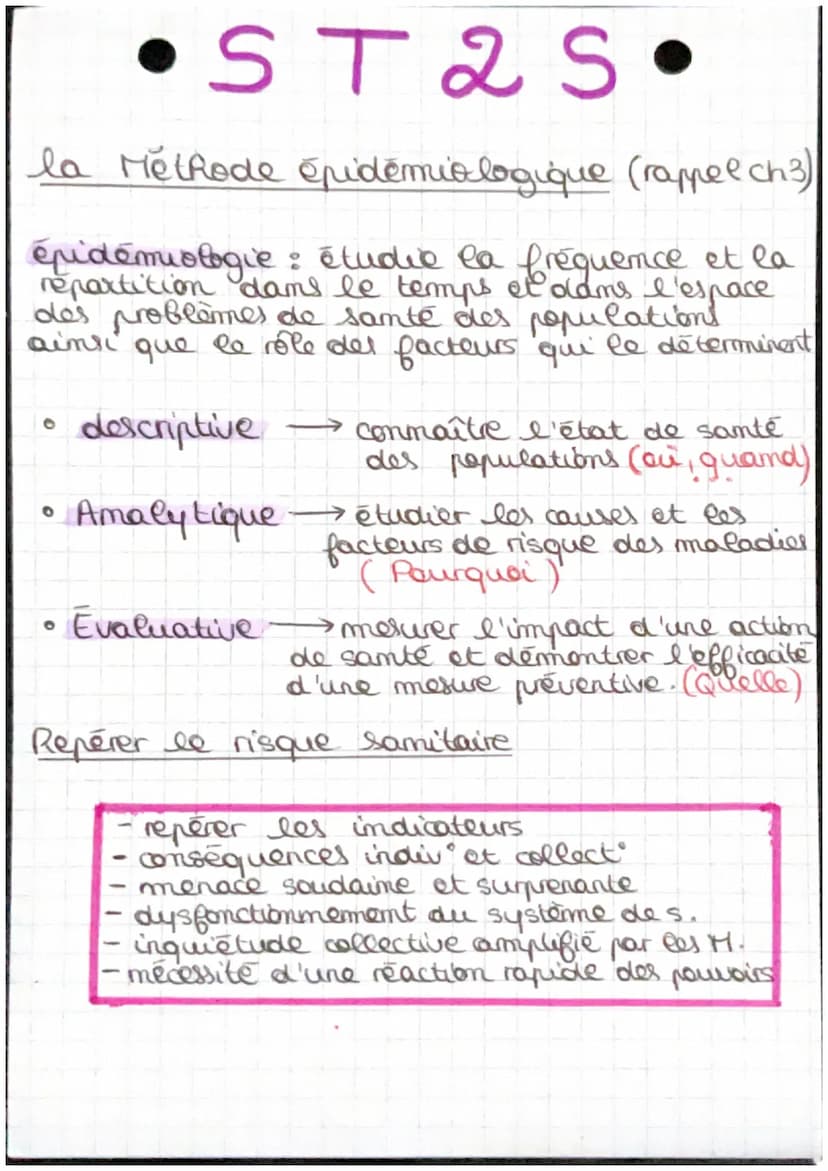 • S T 2 S •
la Méthode épidémiologique (rappel ch3)
épidémiologie : étudie la fréquence et la
répartition dans le temps et dans l'espace
des problèmes de santé des populations
ainsi que le rôle des facteurs qui le déterminent
• descriptive → connaître l'état de santé
des populations (où, quand)
• Analytique → étudier les causes et les
facteurs de risque des maladies
( Pourquoi )
• Évaluative → mesurer l'impact d'une action
de santé et démontrer l'efficacité
d'une mesure préventive. (Quelle)
Repérer le risque sanitaire
- repérer les indicateurs
- conséquences indiv° et collect°
- menace soudaine et surprenante
- dysfonctionnement du système de s.
- inquiétude collective amplifié par les M.
- nécessité d'une réaction rapide des pouvoirs